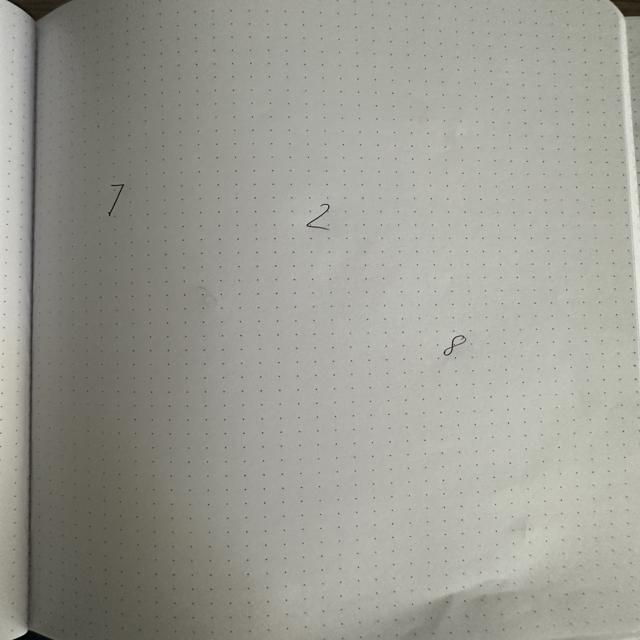 7
2
8